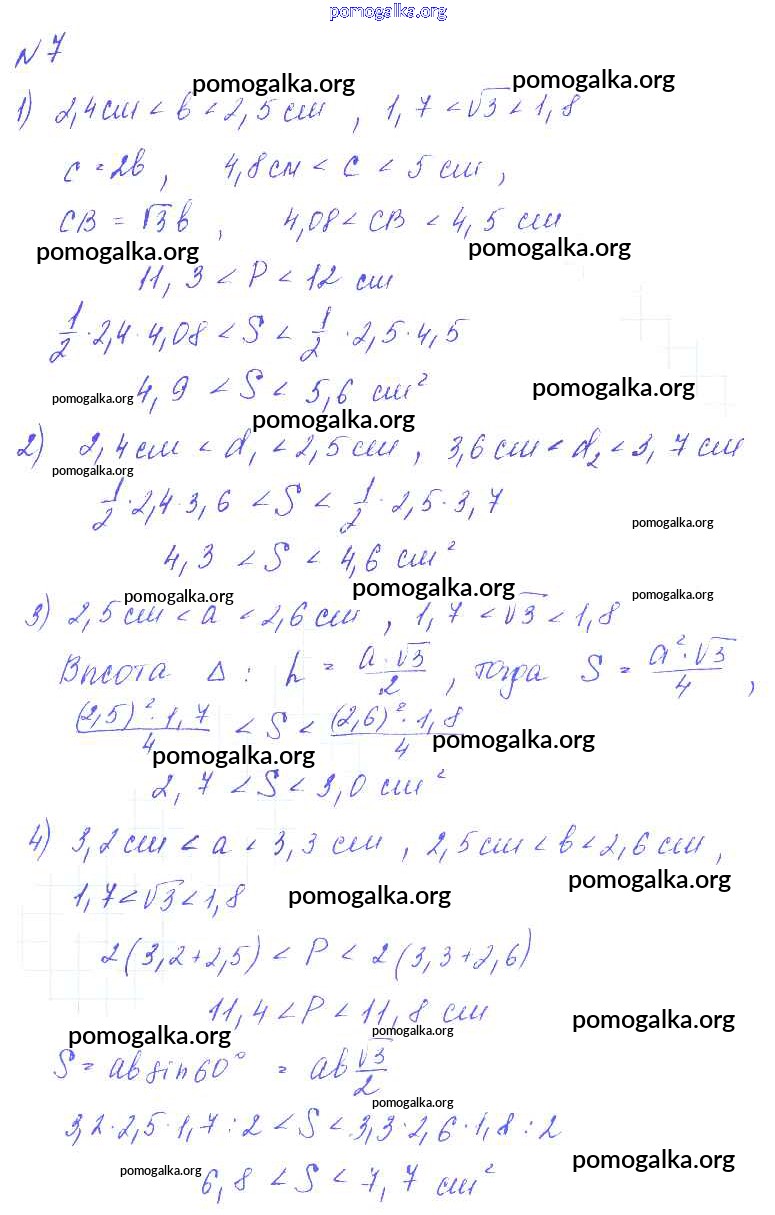 pomogalka.org
N 7
pomogalka.org pomogalka.org
1) 2,4 см < b < 2,5 см , 1,7 < √3 < 1,8
c = 2b , 4,8 см < c < 5 см ,
CB = √3 b , 4,08 < CB < 4,5 см
pomogalka.org pomogalka.org
11,3 < P < 12 см
1/2 · 2,4 · 4,08 < S < 1/2 · 2,5 · 4,5
4,9 < S < 5,6 см²
pomogalka.org pomogalka.org
pomogalka.org
2) 2,4 см < d₁ < 2,5 см , 3,6 см < d₂ < 3,7 см
pomogalka.org
1/2 · 2,4 · 3,6 < S < 1/2 · 2,5 · 3,7
pomogalka.org
4,3 < S < 4,6 см²
pomogalka.org pomogalka.org pomogalka.org
3) 2,5 см < a < 2,6 см , 1,7 < √3 < 1,8
Высота Δ : h = a·√3/2 , тогда S = a²·√3/4 ,
(2,5)²·1,7/4 < S < (2,6)²·1,8/4
pomogalka.org pomogalka.org
2,7 < S < 3,0 см²
4) 3,2 см < a < 3,3 см , 2,5 см < b < 2,6 см ,
pomogalka.org pomogalka.org
1,7 < √3 < 1,8
2(3,2+2,5) < P < 2(3,3+2,6)
11,4 < P < 11,8 см
pomogalka.org pomogalka.org pomogalka.org
S = ab sin 60° = ab √3/2
pomogalka.org
3,2 · 2,5 · 1,7 : 2 < S < 3,3 · 2,6 · 1,8 : 2
pomogalka.org pomogalka.org
6,8 < S < 7,7 см²